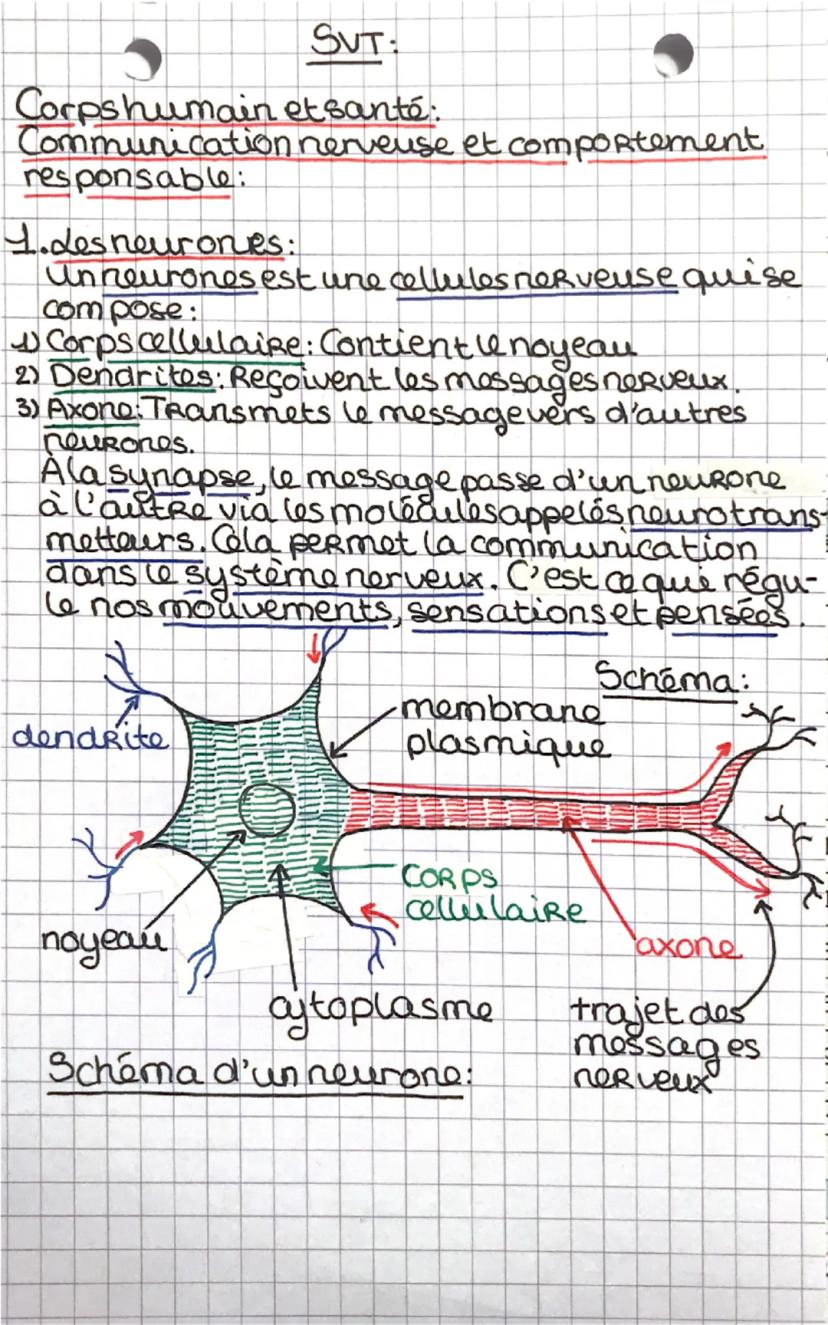 SVT:
Corps humain et santé:
Communication nerveuse et comportement
responsable:
1. Les neurones:
Un neurones est une cellules nerveuse qui se
compose:
1) Corps cellulaire: Contient le noyeau
2) Dendrites: Reçoivent les messages nerveux.
3) Axone: Transmets le message vers d'autres
neurones.
À la synapse, le message passe d'un neurone
à l'autre via les molécules appelés neurotrans-
metteurs. Cela permet la communication
dans le système nerveux. C'est ce qui régu-
le nos mouvements, sensations et pensées.
Schéma:
dendrite
membrane
plasmique
corps
cellulaire
noyeau
axone
cytoplasme
trajet des
messages
nerveux
Schéma d'un neurone: